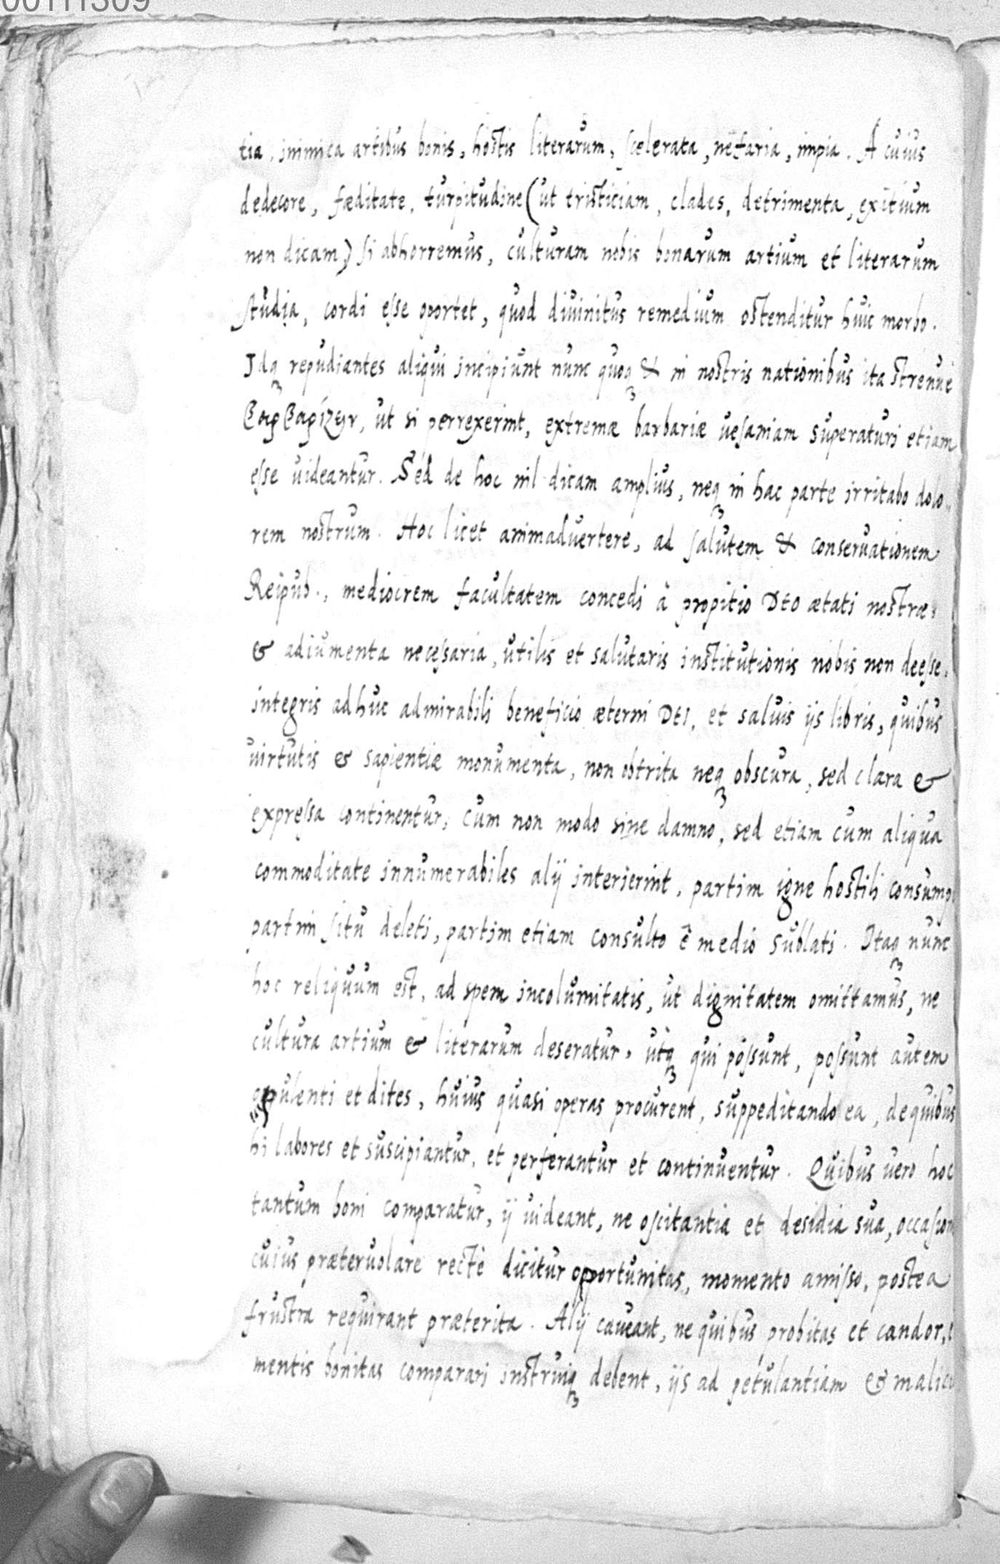 00111309
tia, inimica artibus bonis, hostis literarum, scelerata, nefaria, impia. A cuius
dedecore, fæditate, turpitudine (ut tristiciam, clades, detrimenta, exitium
non dicam) si abhorremus, culturam nobis bonarum artium et literarum
studia, cordi esse oportet, quod diuinitus remedium ostenditur huic morbo.
Idq repudiantes aliqui incipiunt nunc quoq & in nostris nationibus ita strenue
βαρβαρίζειν, ut si perrexerint, extremæ barbariæ uesaniam superaturi etiam
esse uideantur. Sed de hoc nil dicam amplius, neq in hac parte irritabo dolo
rem nostrum. Hoc licet animaduertere, ad salutem & conseruationem
Reipub., mediocrem facultatem concedi à propitio DEO ætati nostræ,
& adiumenta necessaria, utilis et salutaris institutionis nobis non deesse,
integris adhuc admirabili beneficio æterni DEI, et saluis ijs libris, quibus
uirtutis & sapientiæ monumenta, non obtrita neq obscura, sed clara &
expressa continentur, cum non modo sine damno, sed etiam cum aliqua
commoditate innumerabiles alij interierint, partim igne hostili consumpti
partim situ deleti, partim etiam consulto è medio sublati. Itaq nunc
hoc reliquum est, ad spem incolumitatis, ut dignitatem omittamus, ne
cultura artium & literarum deseratur, utq qui possunt, possunt autem
opulenti et dites, huius quasi operas procurent, suppeditando ea, de quibus
hi labores et suscipiantur, et perferantur et continuentur. Quibus uero hoc
tantum boni comparatur, ij uideant, ne oscitantia et desidia sua, occasion
cuius præteruolare recte dicitur opportunitas, momento amisso, postea
frustra requirant præterita. Alij caueant, ne quibus probitas et candor,
mentis bonitas comparari instruiq debent, ijs ad petulantiam & malici